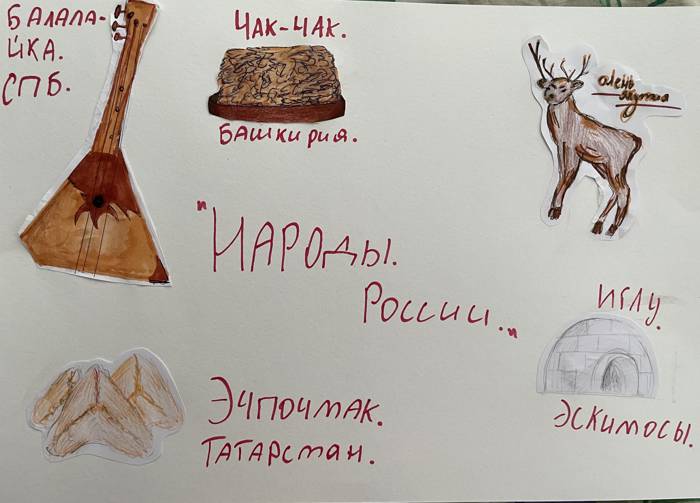 БАЛАЛА-
ЙКА.
СПБ.
ЧАК-ЧАК.
БАШКИРИЯ.
олень
якутия
"НАРОДЫ.
РОССИИ."
ИГЛУ.
ЭСКИМОСЫ.
ЭЧПОЧМАК.
ТАТАРСТАН.